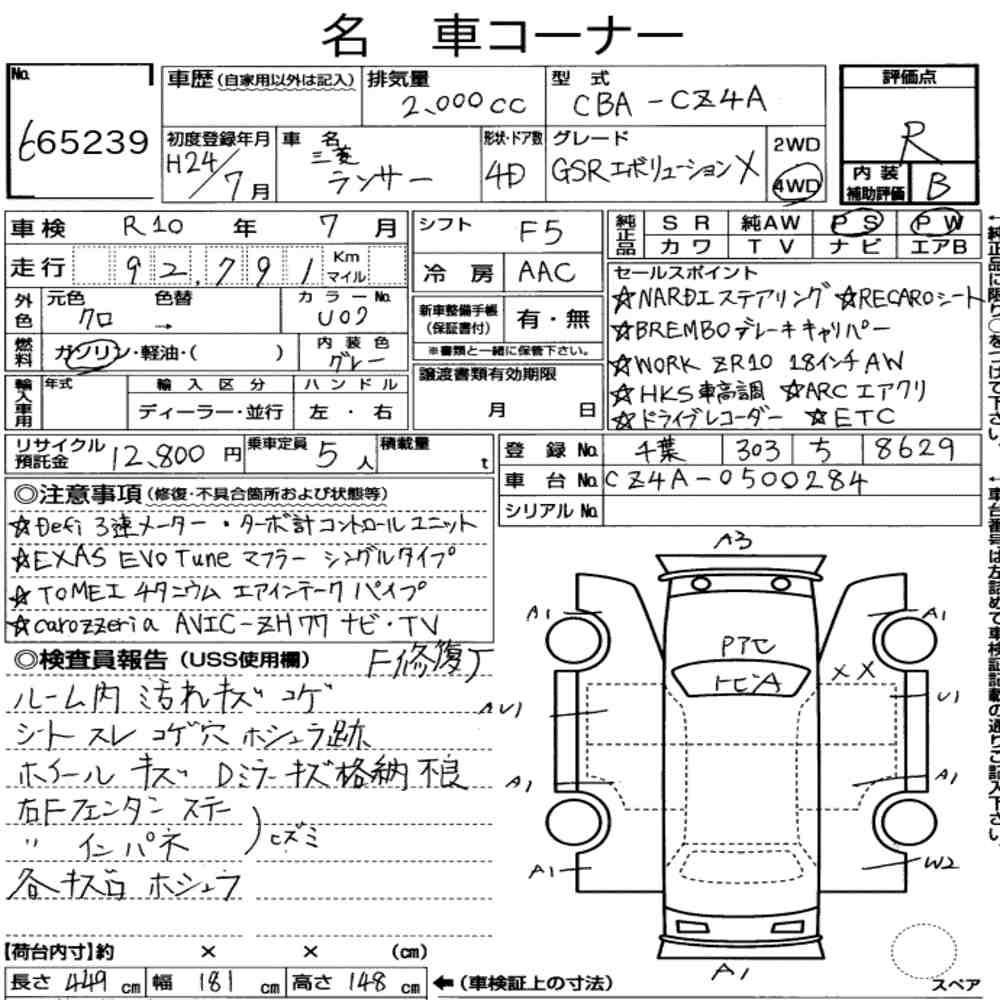 名 車コーナー
No.
665239
車歴 (自家用以外は記入)
排気量
2,000 cc
型 式
CBA - CZ4A
評価点
R
内装補助評価
B
初度登録年月
H24/7月
車 名
三菱
ランサー
形状・ドア数
4D
グレード
GSRエボリューションX
2WD
4WD
車検 R10 年 7 月
走行 92,791 Km マイル
外色
元色
クロ
色替
→
カラーNo.
U09
燃料
ガソリン・軽油・( )
内装色
グレー
輸入車用
年式
輸入区分
ディーラー・並行
ハンドル
左・右
シフト F5
冷房 AAC
新車整備手帳
(保証書付)
有・無
※書類と一緒に保管下さい。
譲渡書類有効期限
月 日
純正品
SR 純AW PS PW
カワ TV ナビ エアB
セールスポイント
☆NARDIステアリング ☆RECAROシート
☆BREMBOブレーキキャリパー
☆WORK ZR10 18インチAW
☆HKS車高調 ☆ARCエアクリ
☆ドライブレコーダー ☆ETC
←純正品に限り○をつけて下さい。
リサイクル預託金 12,800 円
乗車定員 5 人
積載量 t
登録No. 千葉 303 ち 8629
車台No. CZ4A-0500284
シリアルNo.
←車台番号は左詰めで車検証記載の通りご記入下さい。
◎注意事項(修復・不具合箇所および状態等)
☆Defi 3連メーター・ターボ計コントロールユニット
☆EXAS EVO Tune マフラー シングルタイプ
☆TOMEI チタニウム エアインテークパイプ
☆carozzeria AVIC-ZH77 ナビ・TV
◎検査員報告(USS使用欄)
F修復J
ルーム内 汚れキズ コゲ
シート スレ コゲ穴 ホシュウ跡
ホイール キズ Dミラーキズ格納不良
右Fフェンダン ステー
〃 インパネ
ヒズミ
各キズ凹 ホシュウ
A3
A1
A1
PTセ
トビA
XX
AU1
U1
A1
A1
A1
W2
A1
スペア
【荷台内寸】約 × × (cm)
長さ 449 cm 幅 181 cm 高さ 148 cm ←(車検証上の寸法)